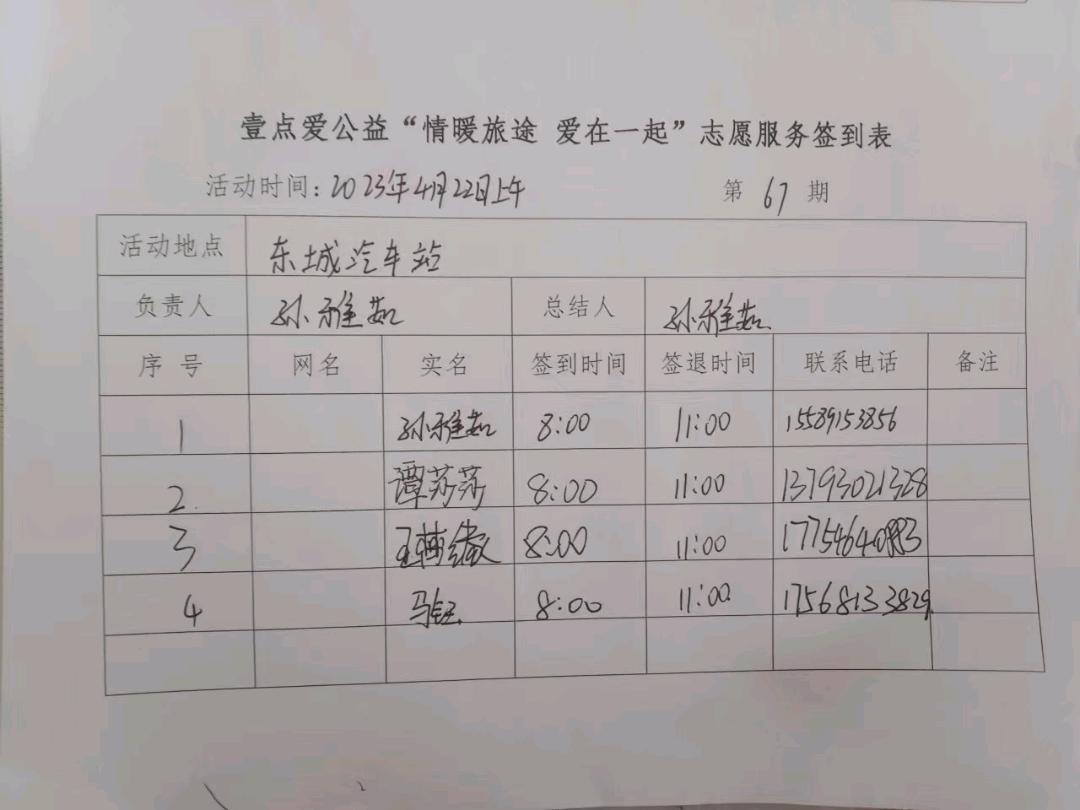 壹点爱公益“情暖旅途 爱在一起”志愿服务签到表
活动时间：2023年4月22日上午 第 67 期
活动地点 东城汽车站
负责人 孙雅茹 总结人 孙雅茹
序号 网名 实名 签到时间 签退时间 联系电话 备注
1 孙雅茹 8:00 11:00 15589153856
2 谭莎莎 8:00 11:00 13793021328
3 8:00 11:00
4 马钰 8:00 11:00 17568133829